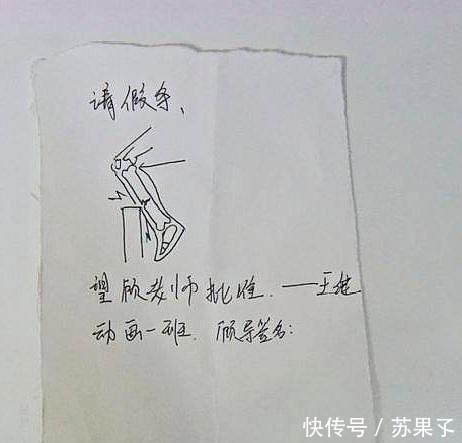 请假条、
望顾教师批准. ——王继
动画一班. 顾导签名:
快传号 / 苏果子